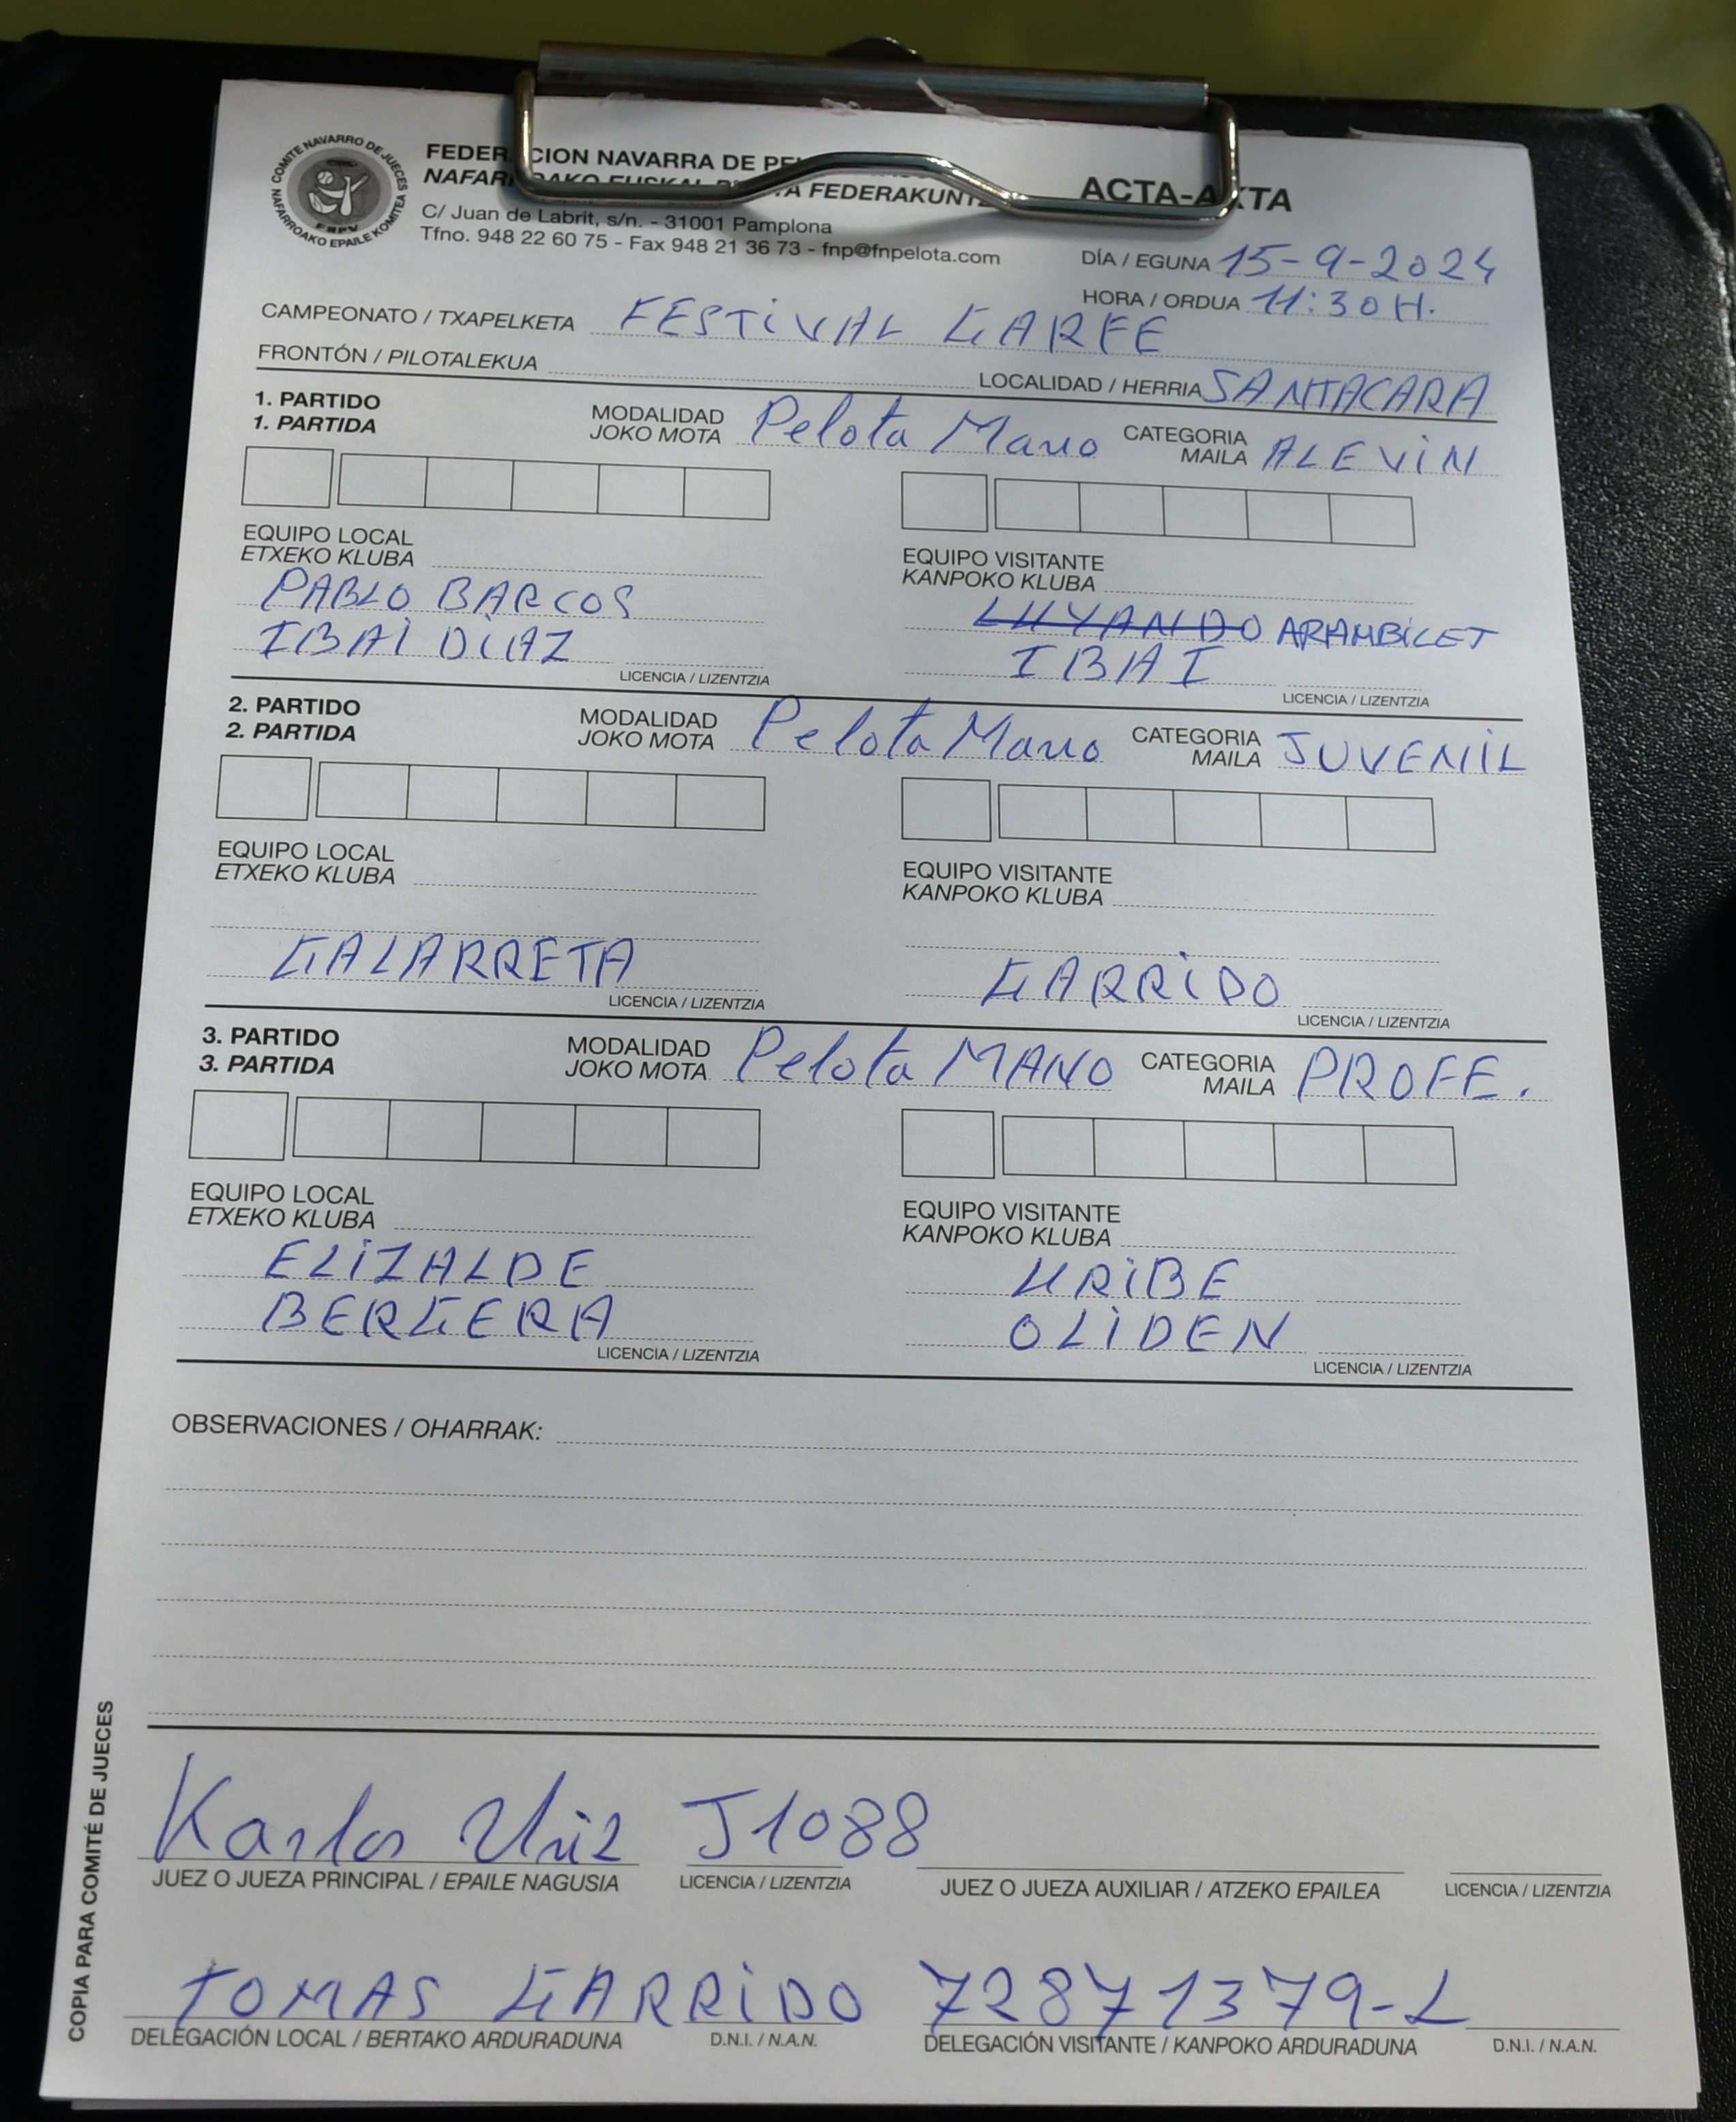 COMITE NAVARRO DE JUECES
NAFARROAKO EPAILE KOMITEA
FEDERACION NAVARRA DE
NAFARROAKO EUSKAL FEDERAKUNTZA
C/ Juan de Labrit, s/n. - 31001 Pamplona
Tfno. 948 22 60 75 - Fax 948 21 36 73 - fnp@fnpelota.com
ACTA-AKTA
DÍA / EGUNA 15-9-2024
HORA / ORDUA 11:30 H.
CAMPEONATO / TXAPELKETA FESTIVAL GARFE
FRONTÓN / PILOTALEKUA LOCALIDAD / HERRIA SANTACARA
1. PARTIDO MODALIDAD Pelota Mano CATEGORIA ALEVIN
1. PARTIDA JOKO MOTA MAILA
EQUIPO LOCAL EQUIPO VISITANTE
ETXEKO KLUBA KANPOKO KLUBA
PABLO BARCOS LUYANDO ARAMBILET
IBAI DIAZ IBAI
LICENCIA / LIZENTZIA LICENCIA / LIZENTZIA
2. PARTIDO MODALIDAD Pelota Mano CATEGORIA JUVENIL
2. PARTIDA JOKO MOTA MAILA
EQUIPO LOCAL EQUIPO VISITANTE
ETXEKO KLUBA KANPOKO KLUBA
GALARRETA GARRIDO
LICENCIA / LIZENTZIA LICENCIA / LIZENTZIA
3. PARTIDO MODALIDAD Pelota MANO CATEGORIA PROFE.
3. PARTIDA JOKO MOTA MAILA
EQUIPO LOCAL EQUIPO VISITANTE
ETXEKO KLUBA KANPOKO KLUBA
ELIZALDE URIBE
BERGERA OLIDEN
LICENCIA / LIZENTZIA LICENCIA / LIZENTZIA
OBSERVACIONES / OHARRAK:
COPIA PARA COMITÉ DE JUECES
Karlos Uriz J1088
JUEZ O JUEZA PRINCIPAL / EPAILE NAGUSIA LICENCIA / LIZENTZIA JUEZ O JUEZA AUXILIAR / ATZEKO EPAILEA LICENCIA / LIZENTZIA
TOMAS GARRIDO 72871379-L
DELEGACIÓN LOCAL / BERTAKO ARDURADUNA D.N.I. / N.A.N. DELEGACIÓN VISITANTE / KANPOKO ARDURADUNA D.N.I. / N.A.N.